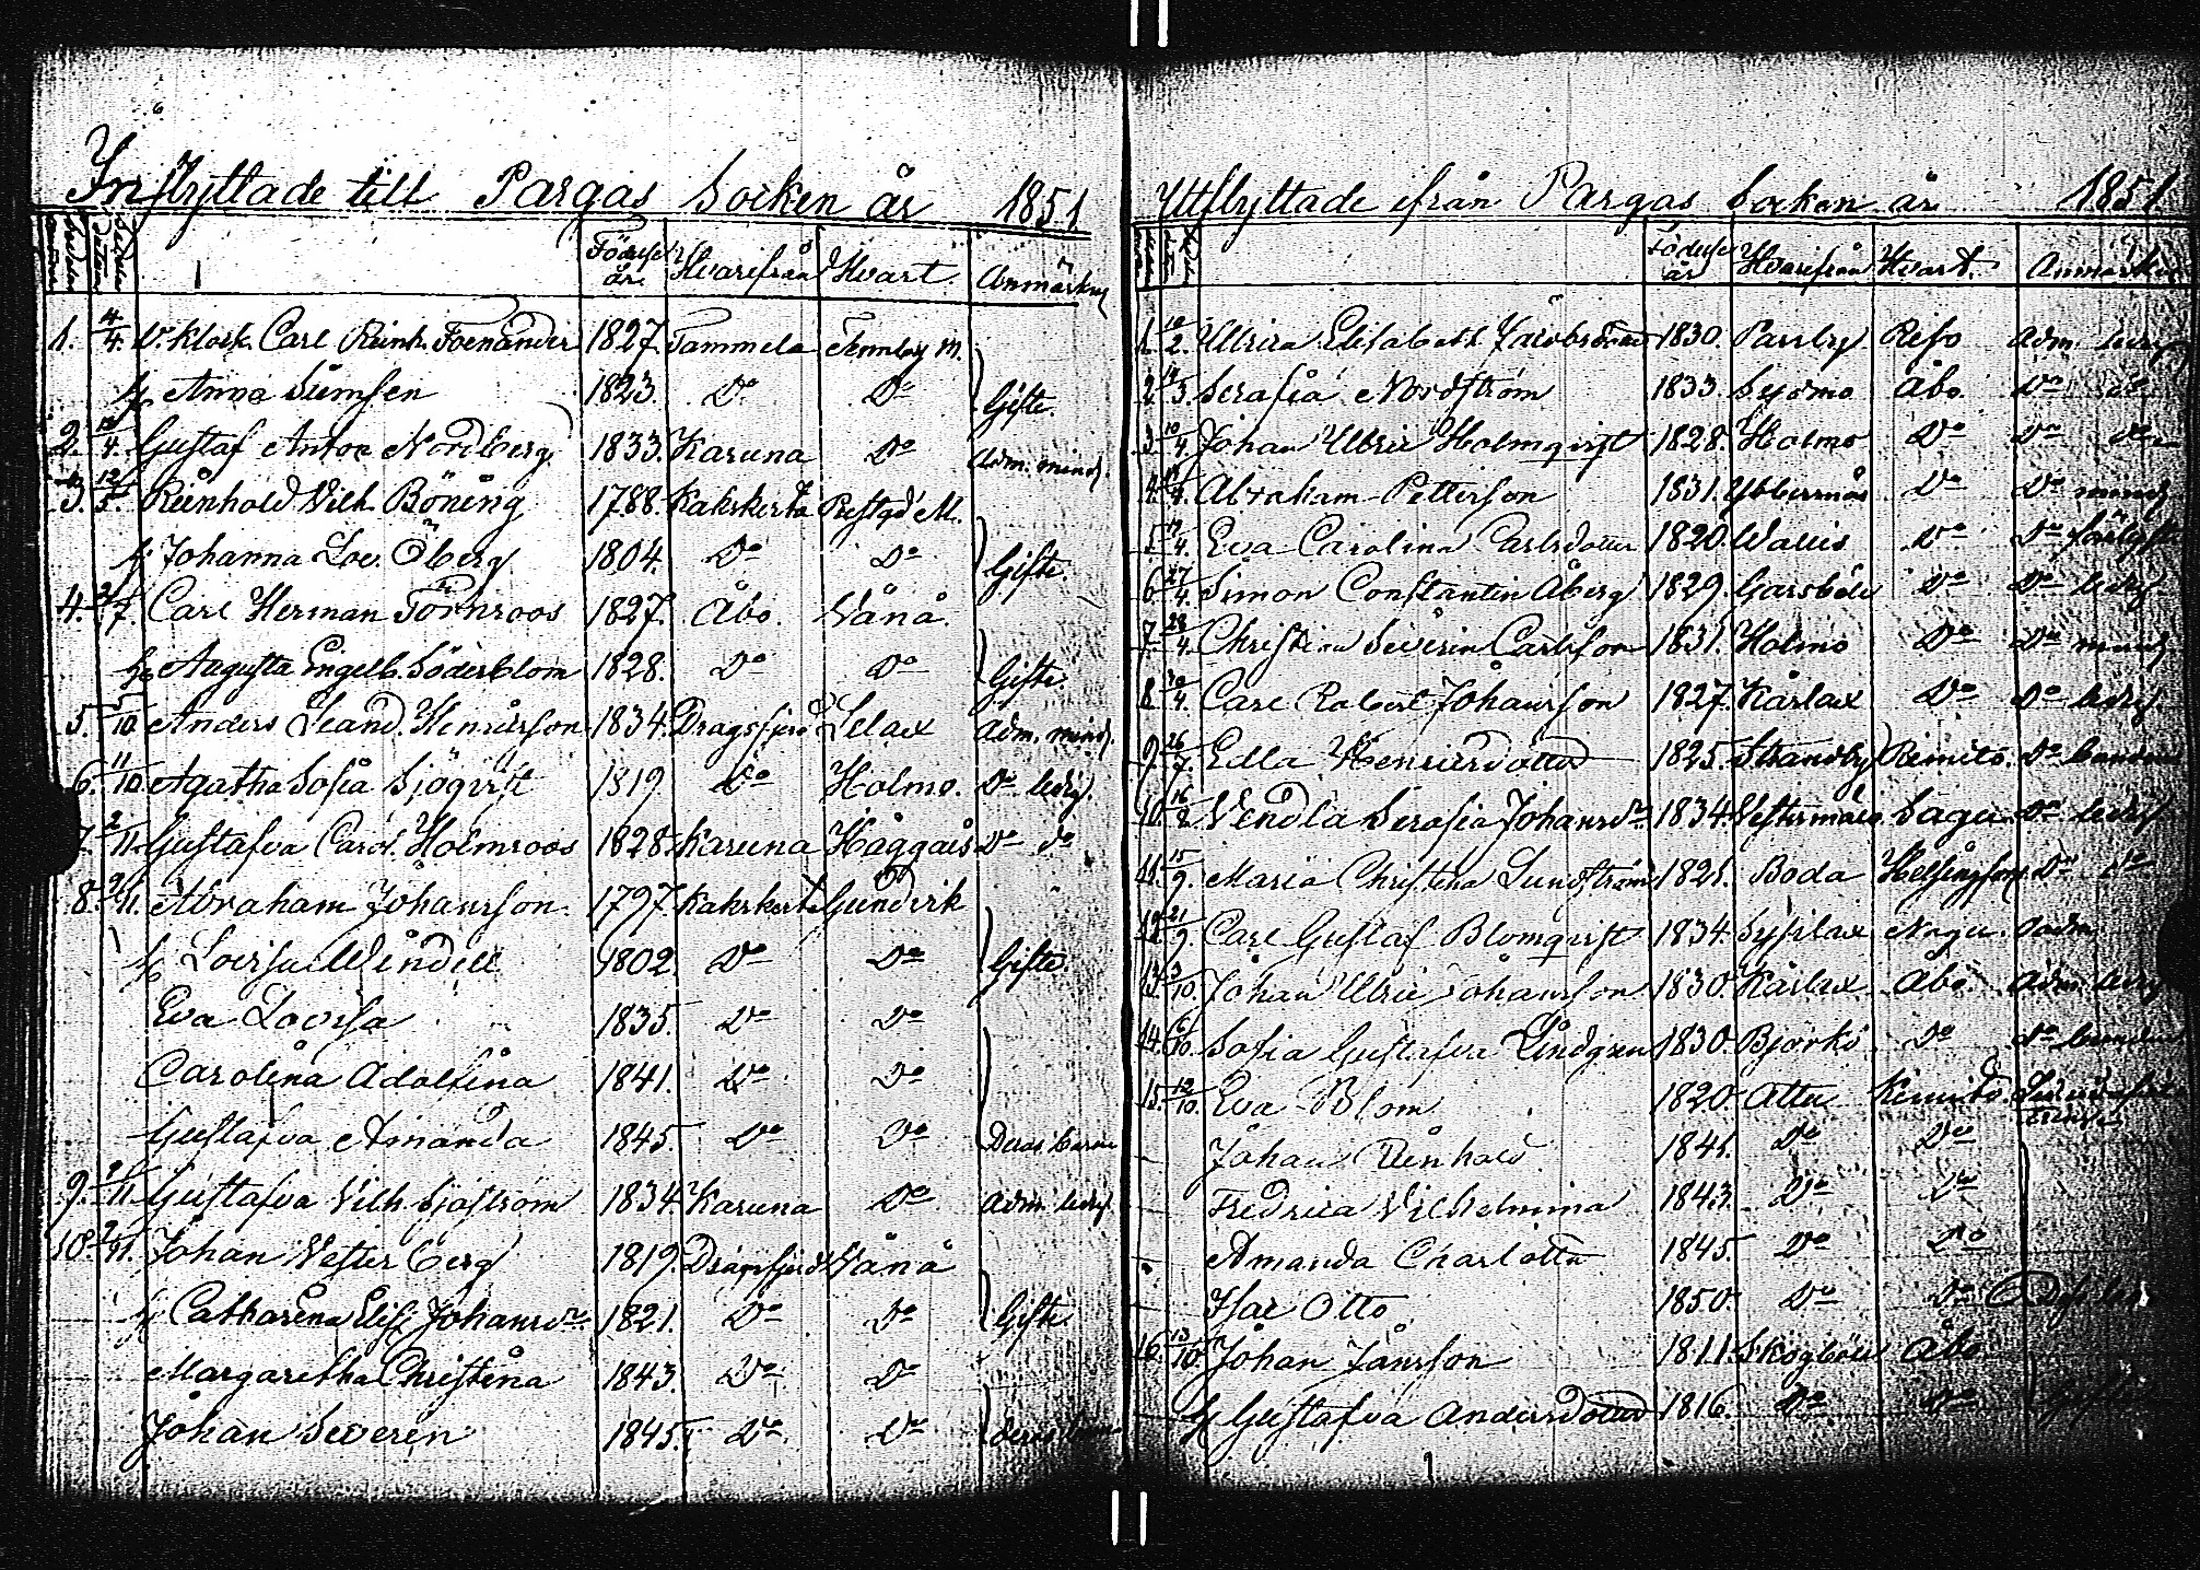 Inflyttade till Pargas Socken år 1851
Födelse år Hvarifrån Hvart. Anmärkn
1. 4/4. V. Klock. Carl Reinh. Foenander 1827. Tammela Tennby M.
h. Anna Sumsen 1823. Do Do Gifte.
2. 12/4. Gustaf Anton Nordberg 1833. Karuna Do Adm. mindj.
3. 12/5. Reinhold Vilh. Böning 1788. Kakskerta Prestgd M.
h. Johanna Lov. Öberg 1804. Do Do Gifte.
4. 2/7. Carl Herman Törnroos 1827. Åbo. Vånå.
h. Augusta Engelb. Söderblom 1828. Do Do Gifte.
5. 5/10. Anders Leand. Henriksson 1834. Dragsfjerd Lelax Adm. mindj.
6. 11/10. Agatha Sofia Sjöqvist 1819. Do Holmo. Do ledig.
7. 2/11. Gustafva Carol. Holmroos 1828. Karuna Haggais Do do
8. 9/11. Abraham Johansson. 1797. Kakskerta Gundvik
h. Lovisa Windell 1802. Do Do Gifte.
Eva Lovisa 1835. Do Do
Carolina Adolfina 1841. Do Do
Gustafva Amanda 1845 Do Do Deras barn
9. 9/11. Gustafva Vilh. Sjöström 1834. Karuna Do Adm. ledig.
10. 2/11. Johan Vesterberg 1819. Dragsfjerd Vånå
h. Catharina Elis. Johansdr. 1821. Do Do Gifte
Margaretha Christina 1843. Do Do
Johan Severin 1845. Do Do deras barn
Utflyttade ifrån Pargas Socken år 1851.
Födelse år Hvarifrån Hvart. Anmärkn
1. 10/2. Ulrica Elisabeth Jacobsdotter 1830. Parsby Reso Adm. ledig
2. 14/3. Serafia Nordström 1833. Sydmo Åbo. Do do
3. 10/4. Johan Ulric Holmqvist 1828. Holmo Do Do do
4. Abraham Petterson 1831. Ybbersnäs Do Do mindj
5. Eva Carolina Carlsdotter 1820. Do Do
6. 27/4. Simon Constantin Åberg 1829. Garsböle Do Do ledig.
7. 28/4. Christian Severin Carlsson 1831. Holmo Do Do mindj.
8. 30/4. Carl Robert Johansson 1827. Kårlax Do Do ledig.
9. 26/7. Edla Henricsdotter 1825. Strandby Rimito. Do
10. Vendla Serafia Johansdr. 1834. Vestermålo Sagu Do ledig
11. 15/9. Maria Christina Lundström 1821. Boda Helsingfors Do do
12. 21/9. Carl Gustaf Blomqvist 1834. Sysilax Nagu.
13. 3/10. Johan Ulric Johansson 1830. Kårlax Åbo. Adm. ledig
14. 6/10. Sofia Gustafva Lindgren 1830. Björkö Do Do
15. 12/10. Eva Blom 1820. Attu Kimito
Johan Reinhold 1841. Do Do
Fredrica Vilhelmina 1843. Do Do
Amanda Charlotta 1845 Do Do
Isac Otto 1850. Do Do
16. 13/10. Johan Jansson 1811. Skogböle Åbo
h Gustafva Andersdotter 1816. Do Do